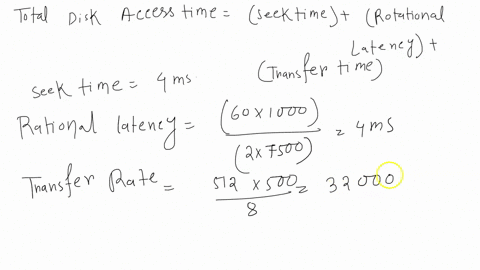 Total Disk Access time = (seek time) + (Rotational Latency) + (Transfer time)
seek time = 4 ms
Rational latency = (60 x 1000) / (2 x 7500) = 4 ms
Transfer Rate = 512 x 500 / 8 = 32000